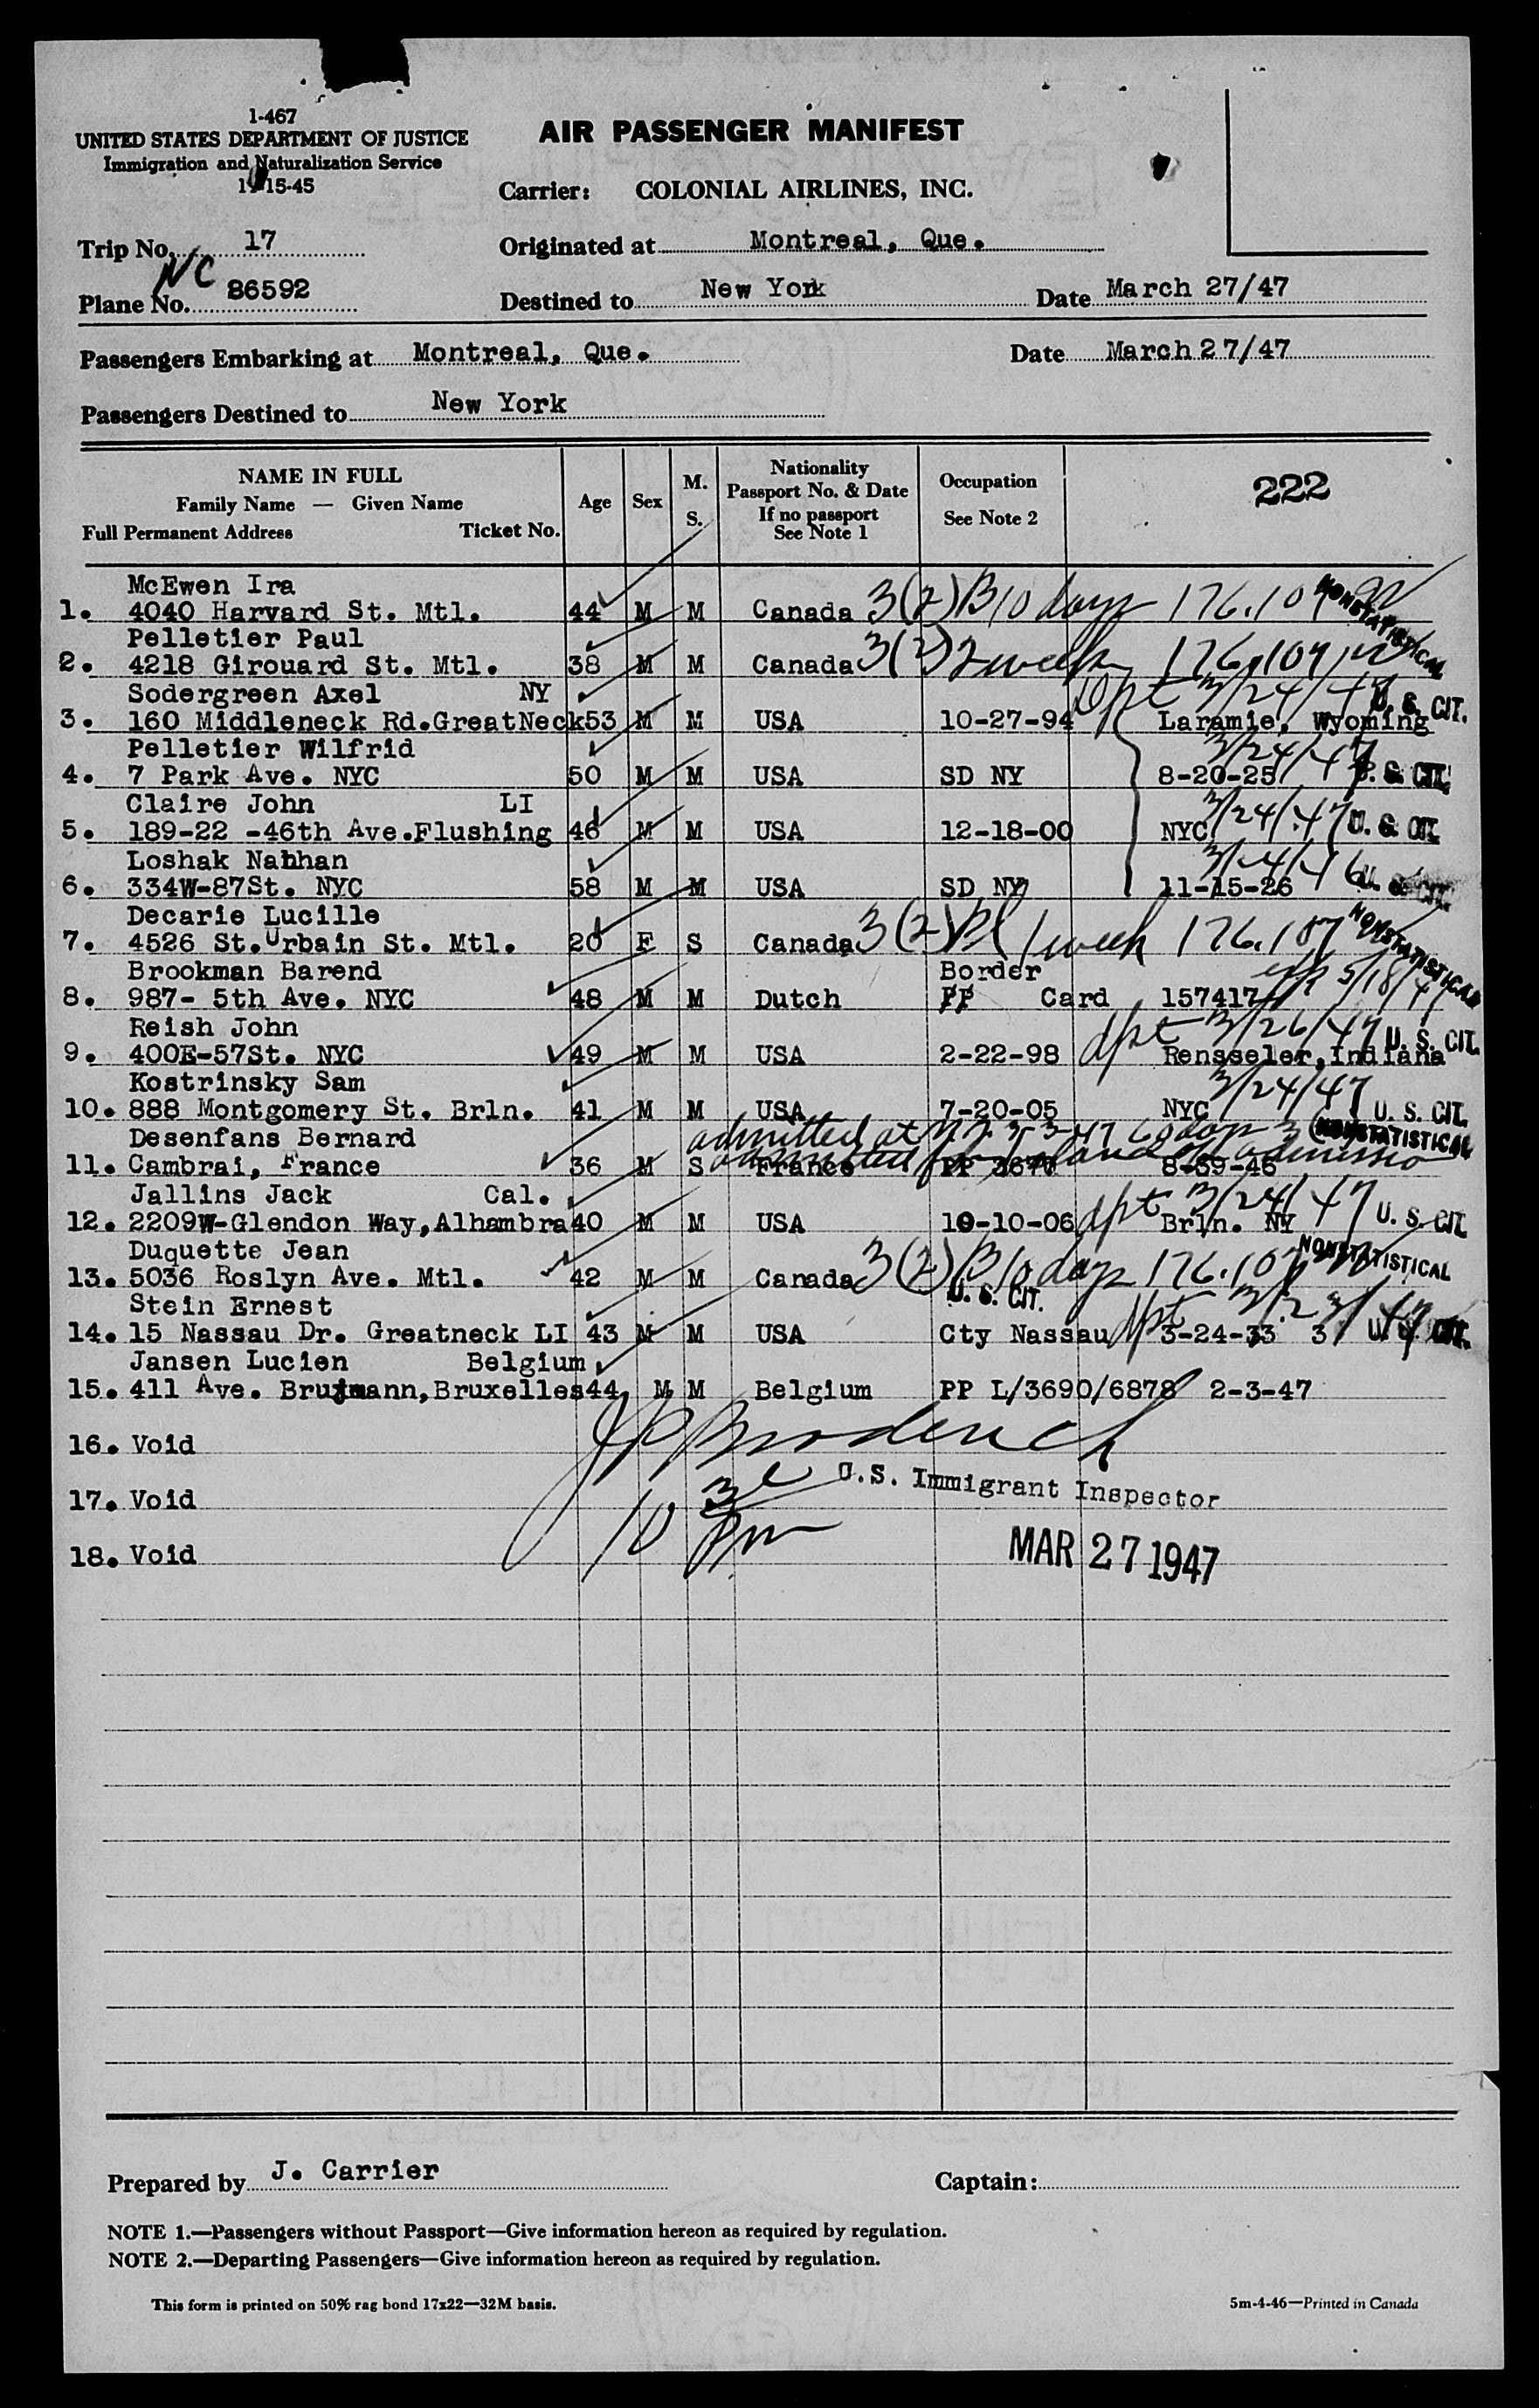 1-467
UNITED STATES DEPARTMENT OF JUSTICE
Immigration and Naturalization Service
15-45
AIR PASSENGER MANIFEST
Carrier: COLONIAL AIRLINES, INC.
Trip No. 17
Originated at Montreal, Que.
NC
Plane No. 86592
Destined to New York
Date March 27/47
Passengers Embarking at Montreal, Que.
Date March 27/47
Passengers Destined to New York
NAME IN FULL
Family Name — Given Name
Full Permanent Address Ticket No.
Age
Sex
M. S.
Nationality
Passport No. & Date
If no passport
See Note 1
Occupation
See Note 2
222
McEwen Ira
1. 4040 Harvard St. Mtl. 44 M M Canada 3(2)B 10 days 176.107 NONSTATISTICAL
Pelletier Paul
2. 4218 Girouard St. Mtl. 38 M M Canada 3(2) 2 week 176.107
Sodergreen Axel NY dpt 3/24/47 U. S. CIT.
3. 160 Middleneck Rd.GreatNeck 53 M M USA 10-27-94 Laramie, Wyoming
Pelletier Wilfrid 3/24/47
4. 7 Park Ave. NYC 50 M M USA SD NY 8-20-25 U. S. CIT.
Claire John LI 3/24/47
5. 189-22 -46th Ave.Flushing 46 M M USA 12-18-00 NYC U. S. CIT.
Loshak Nathan
6. 334W-87St. NYC 58 M M USA SD NY 11-15-26 U. S. CIT.
Decarie Lucille
7. 4526 St.Urbain St. Mtl. 20 F S Canada 3(2) 1 week 176.107 NONSTATISTICAL
Brookman Barend Border
8. 987- 5th Ave. NYC 48 M M Dutch PP Card 157417
Reish John dpt 3/26/47 U. S. CIT.
9. 400E-57St. NYC 49 M M USA 2-22-98 Rensseler,Indiana
Kostrinsky Sam 3/24/47
10. 888 Montgomery St. Brln. 41 M M USA 7-20-05 NYC U. S. CIT.
Desenfans Bernard admitted at NONSTATISTICAL
11. Cambrai, France 36 M S France PP 3677 8-39-46
Jallins Jack Cal. dpt 3/24/47
12. 2209W-Glendon Way,Alhambra 40 M M USA 10-10-06 Brln. NY U. S. CIT
Duquette Jean NONSTATISTICAL
13. 5036 Roslyn Ave. Mtl. 42 M M Canada 3(2)B 10 days 176.107
Stein Ernest U. S. CIT. dpt
14. 15 Nassau Dr. Greatneck LI 43 M M USA Cty Nassau 3-24-33 U. S. CIT.
Jansen Lucien Belgium
15. 411 Ave. 44 M M Belgium PP L/3690/6878 2-3-47
16. Void
17. Void
U.S. Immigrant Inspector
10 pm
18. Void
MAR 27 1947
Prepared by J. Carrier
Captain:
NOTE 1.—Passengers without Passport—Give information hereon as required by regulation.
NOTE 2.—Departing Passengers—Give information hereon as required by regulation.
This form is printed on 50% rag bond 17x22—32M basis.
5m-4-46—Printed in Canada